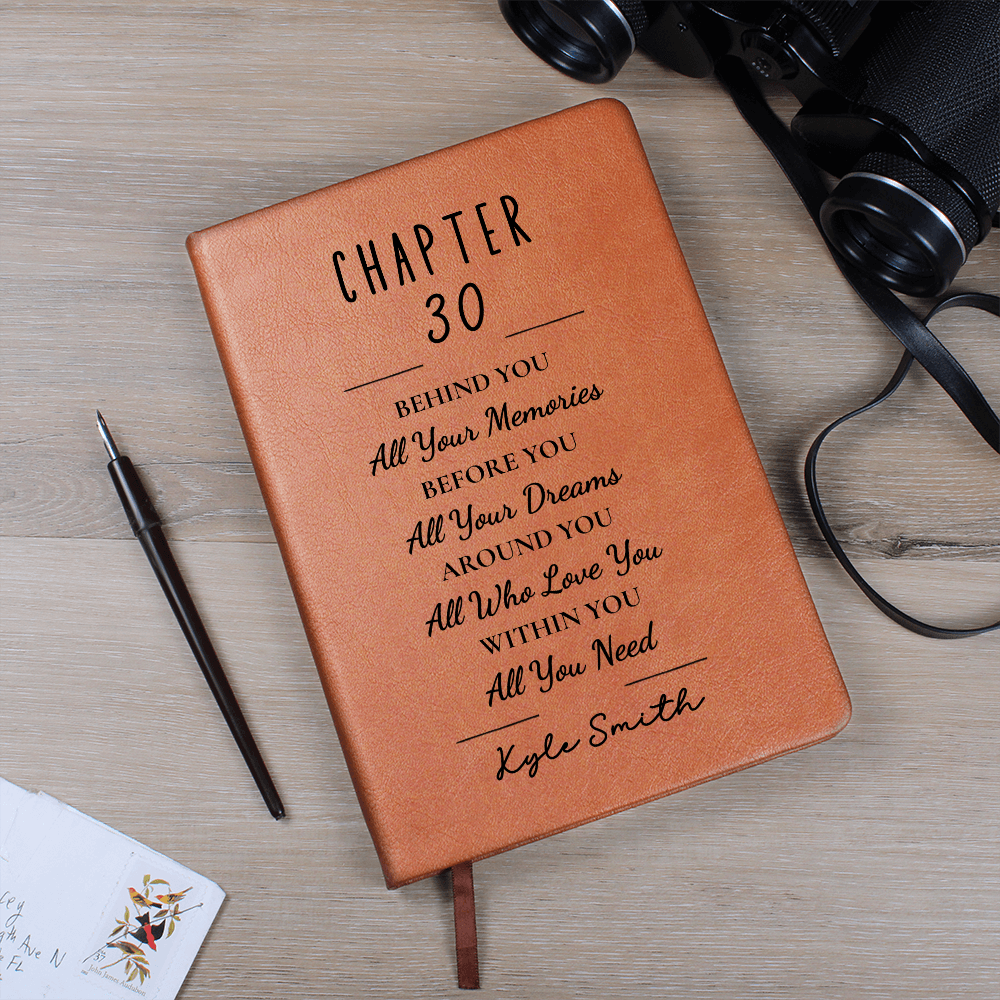 CHAPTER
30
BEHIND YOU
All Your Memories
BEFORE YOU
All Your Dreams
AROUND YOU
All Who Love You
WITHIN YOU
All You Need
Kyle Smith
cey
Ave N
FL
37
John James Audubon